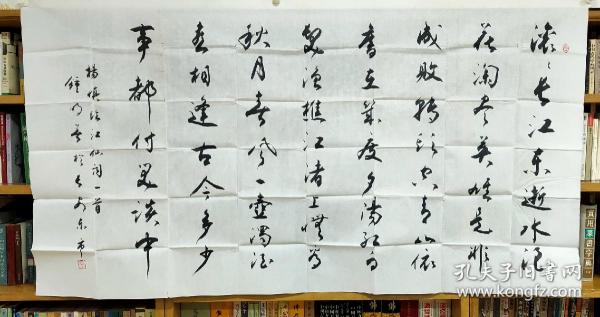 滚〻长江东逝水浪
花淘尽英雄是非
成败转头空青山依
舊在几度夕阳红白
髮渔樵江渚上惯看
秋月春风一壶浊酒
喜相逢古今多少
事都付笑谈中
杨慎临江仙词一首
孔夫子旧书网
www.kongfz.com